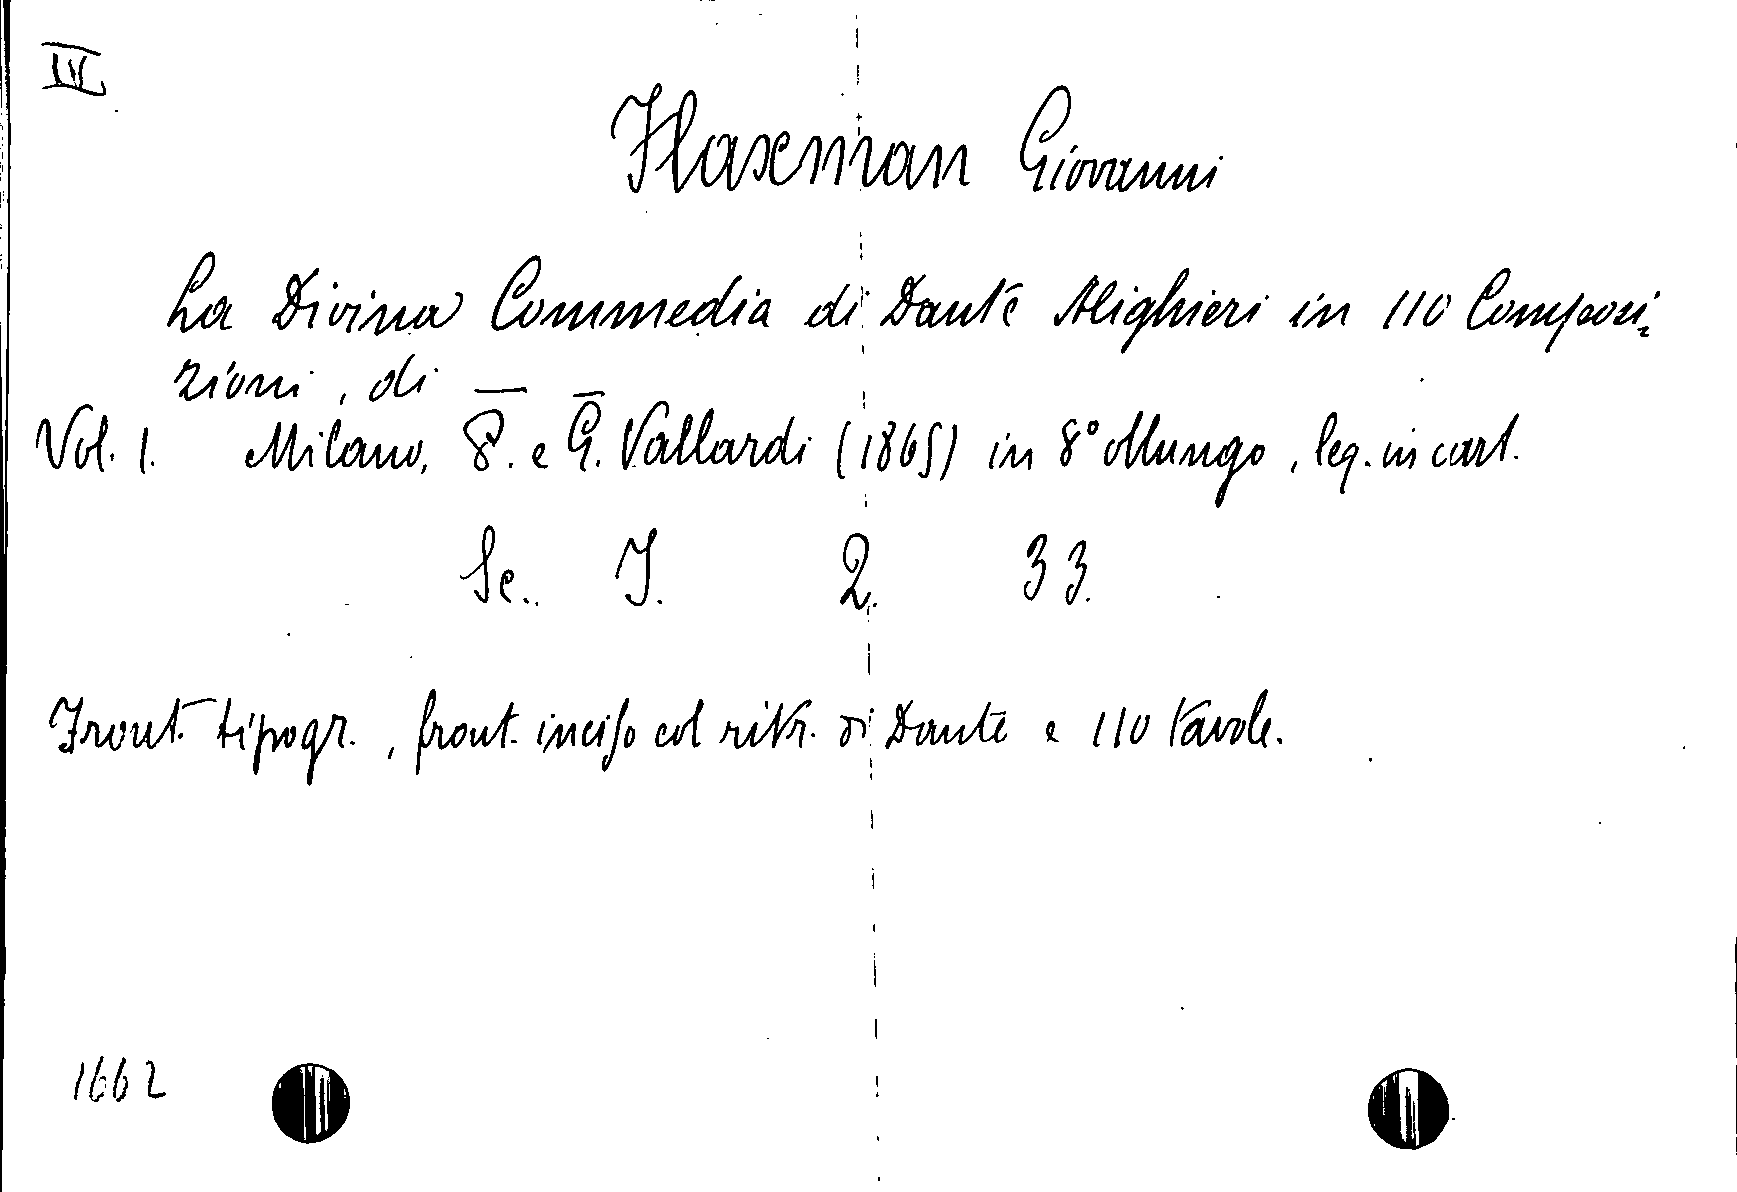 IV
Flaxman Giovanni
La Divina Commedia di Dante Alighieri in 110 Composi,
zioni, di —
Vol. 1. Milano, P. e G. Vallardi (1865) in 8° oblungo, leg. in cart.
Sc. I. 2. 33.
Front. tipogr., front. inciso col ritr. di Dante e 110 tavole.
1662